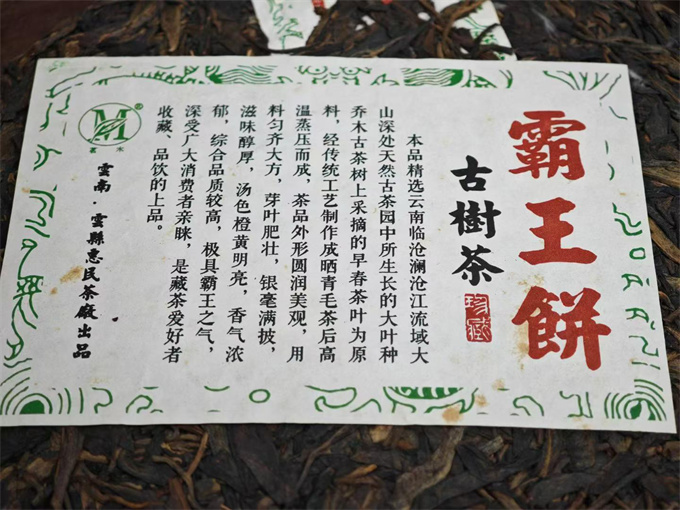 霸王餅
古樹茶
珍藏
本品精选云南临沧澜沧江流域大
山深处天然古茶园中所生长的大叶种
乔木古茶树上采摘的早春茶叶为原
料，经传统工艺制作成晒青毛茶后高
温蒸压而成，茶品外形圆润美观，用
料匀齐大方，芽叶肥壮，银毫满披，
滋味醇厚，汤色橙黄明亮，香气浓
郁，综合品质较高，极具霸王之气，
深受广大消费者亲睐，是藏茶爱好者
收藏、品饮的上品。
M®
茗木
雲南·雲縣惠民茶廠出品